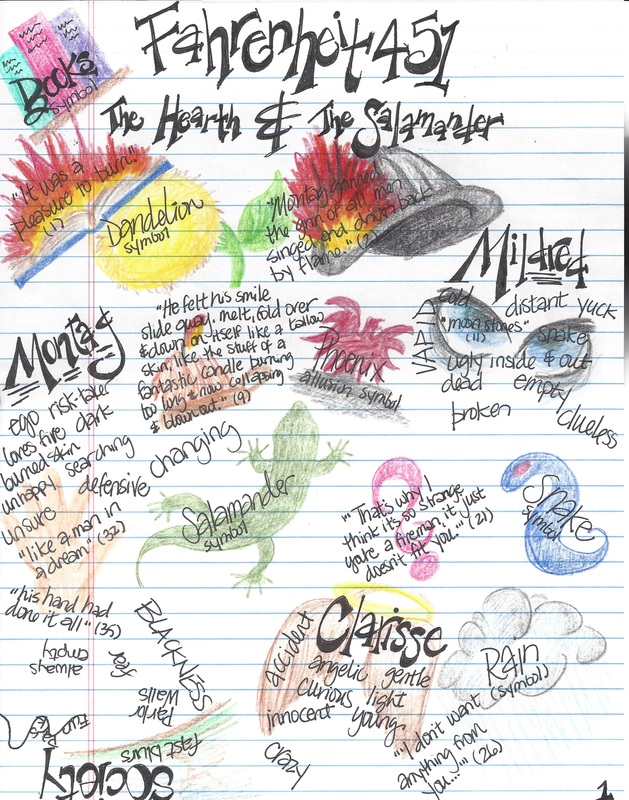 Fahrenheit 451
Books
symbol
The Hearth & The Salamander
"It was a
pleasure to burn."
(1)
Dandelion
symbol
"Montag grinned
the grin of all men
singed and driven back
by flame." (2)
Mildred
cold distant yuck
"moon stones" snake
(11)
VAPID
ugly inside & out
dead empty
broken clueless
Montag
ego risk-taker
loves fire dark
burned skin
unhappy searching
unsure defensive
changing
"like a man in
a dream" (32)
"his hand had
done it all" (35)
"He felt his smile
slide away, melt, fold over
& down on itself like a tallow
skin, like the stuff of a
fantastic candle burning
too long & now collapsing
& blown out." (9)
Phoenix
allusion symbol
Salamander
symbol
"That's why I
think it's so strange
you're a fireman, it just
doesn't fit you." (21)
Snake
symbol
Clarisse
accident
angelic gentle
curious light
innocent young
crazy
Rain
(symbol)
"I don't want
anything from
you..." (26)
BLACKNESS
fear
always
empty
Parlor
Walls
fast blurs
Society
1